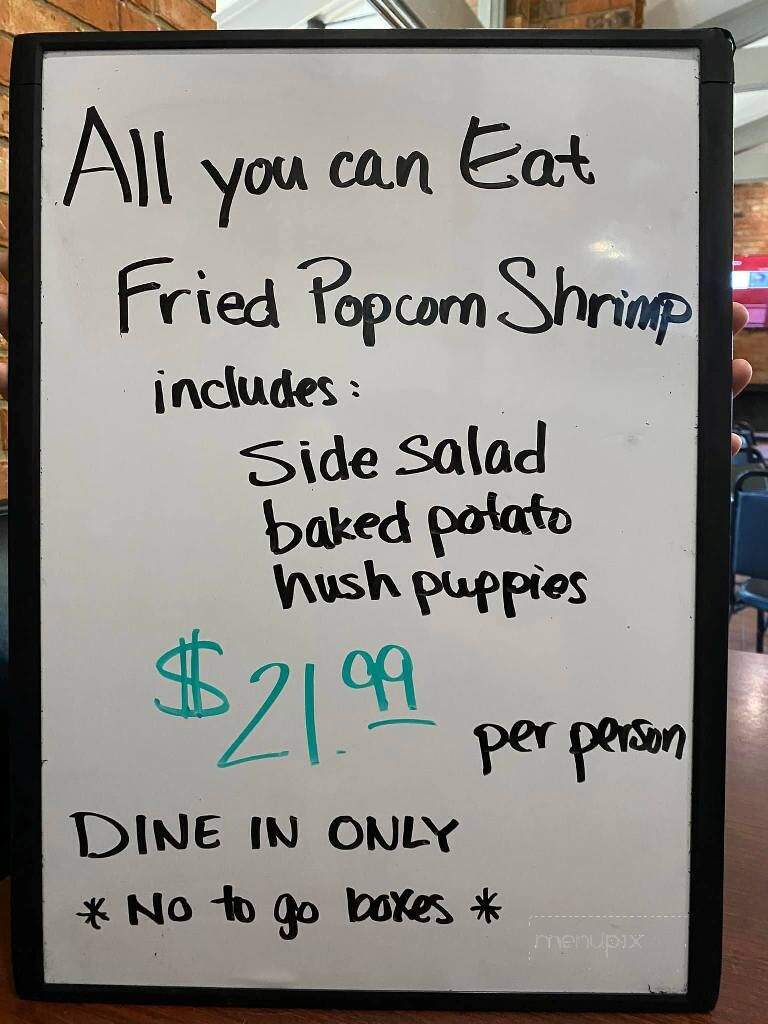 All you can Eat
Fried Popcorn Shrimp
includes:
side salad
baked potato
hush puppies
$21.99 per person
DINE IN ONLY
* No to go boxes *
menupix